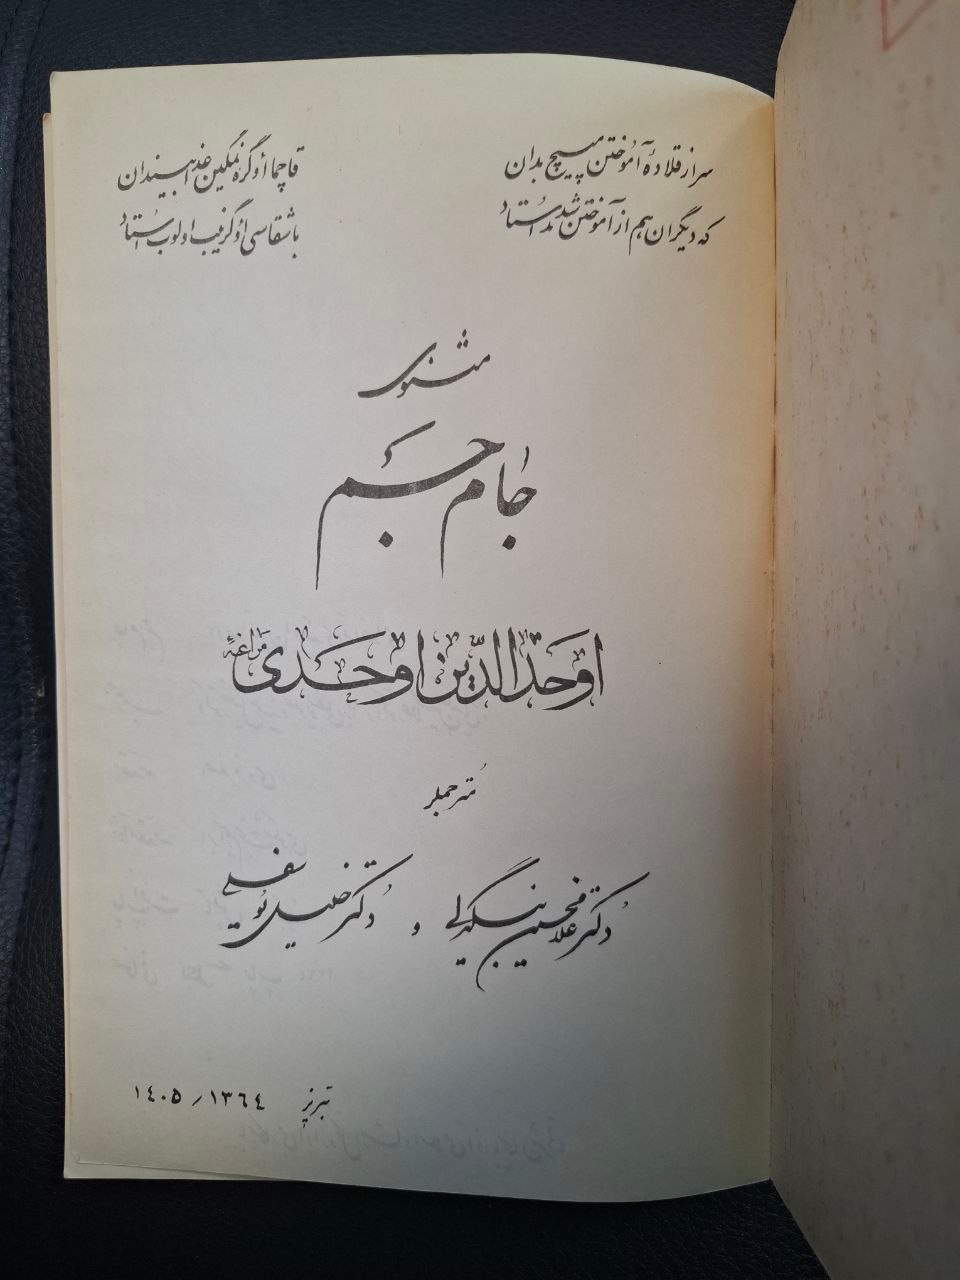 سر از قلادهٔ آموختن مپیچ بدان
که دیگران هم از آموختن شدند اُستاد
قاچما اوگرنمکین اخذیندان
باشقاسی اوگرنیب اولوب اُستاد
مثنوی
جام جم
اوحدالدین اوحدی مراغهٔ
مُترجملر
دکتر غلامحسین بیگدلی و دکتر خلیل یوسفلی
تبریز ۱۳۶۴ / ۱۴۰۵